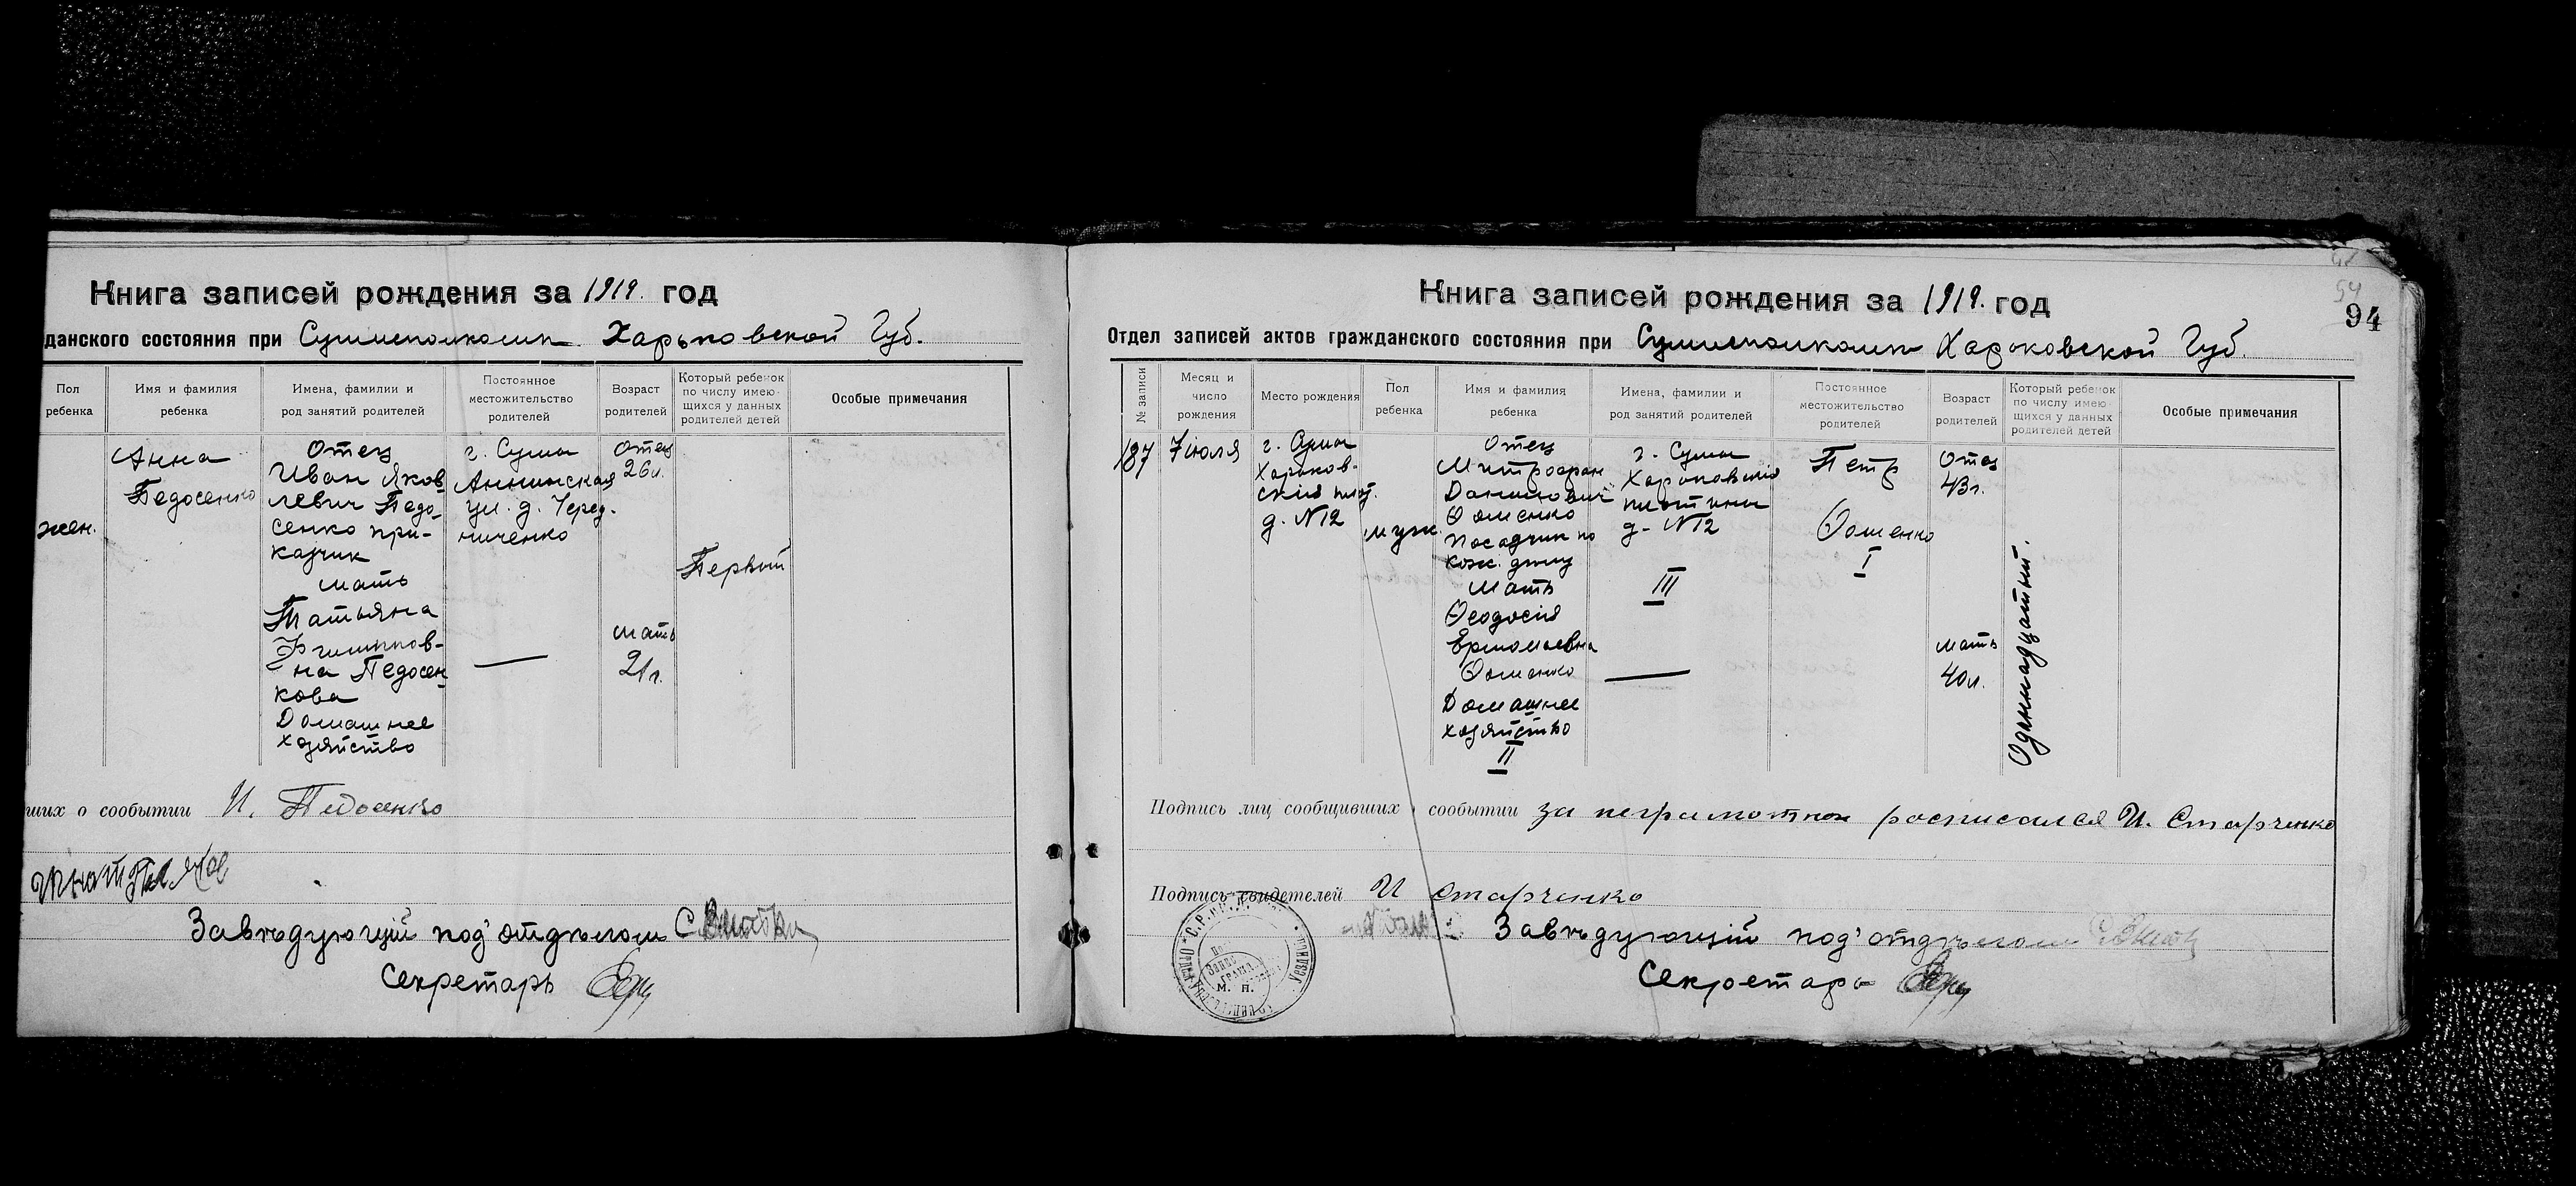 Книга записей рождения за 1919. год
данского состояния при Сумисполкоми Харьковской Губ.
Пол ребенка
Имя и фамилия ребенка
Имена, фамилии и род занятий родителей
Постоянное местожительство родителей
Возраст родителей
Который ребенок по числу имею-щихся у данных родителей детей
Особые примечания
жен.
Анна
Педосенко
Отец
Иван Яков-
левич Педо-
сенко при-
казчик
мать
Татьяна
на Педосен-
кова
Домашнее
хозяйство
г. Сумы
Аннинская
ул. д. Черед-
ниченко
—
Отец
26 л.
мать
21 г.
Первый
ших о сообытии И. Педосенко
Завѣдующій под'отдѣлом
Секретарь
94
Книга записей рождения за 1919. год
Отдел записей актов гражданского состояния при Сумисполкоми Харьковской Губ.
№ записи
Месяц и число рождения
Место рождения
Пол ребенка
Имя и фамилия ребенка
Имена, фамилии и род занятий родителей
Постоянное местожительство родителей
Возраст родителей
Который ребенок по числу имею-щихся у данных родителей детей
Особые примечания
187
7 июля
г. Сумы
Харьков-
скія плот.
д. N12
муж.
Отец
Митрофан
Данилович
Ѳоменко
посадчик по
кож. дѣлу
Мать
Ѳеодосія
Ермолаевна
Ѳоменко
Домашнее
хозяйство
II
г. Сумы
Харьковскія
плотины
д. N12
III
—
Петр
Ѳоменко
I
Отец
43 г.
мать
40 л.
Одиннадцатый.
Подпись лиц сообщивших о сообытии за неграмотной росписался И. Старченко
Подпись свидетелей И Старченко
Завѣдующій под'отдѣлом
Секретарь
М. П.